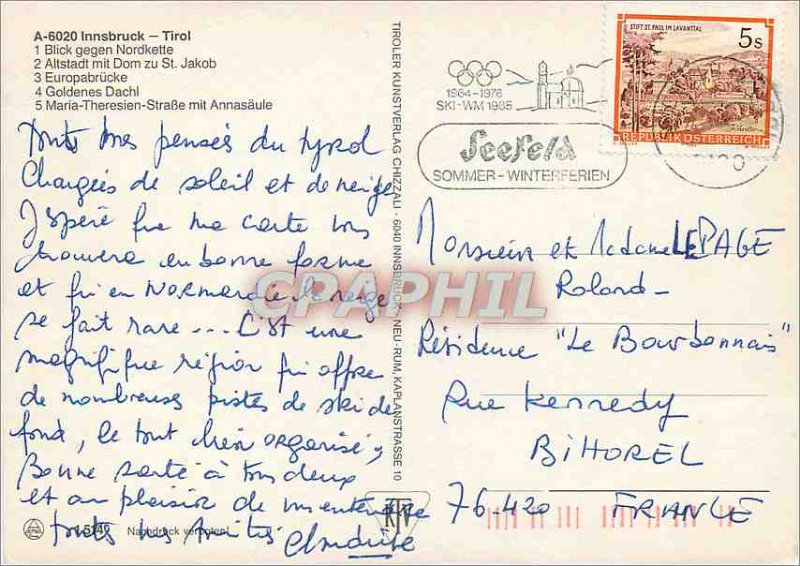 A-6020 Innsbruck – Tirol
1 Blick gegen Nordkette
2 Altstadt mit Dom zu St. Jakob
3 Europabrücke
4 Goldenes Dachl
5 Maria-Theresien-Straße mit Annasäule
toutes mes pensées du tyrol
Chargées de soleil et de neige
J'espère que ma carte vous
trouvera en bonne forme
et qu'en NORMANDIE la neige
se fait rare ... C'est une
magnifique région qui offre
de nombreuses pistes de ski de
fond, le tout bien organisé,
Bonne santé à tous deux
et au plaisir de
toutes les Amitiés
Nachdruck verboten!
TIROLER KUNSTVERLAG CHIZZALI · 6040 INNSBRUCK - NEU-RUM, KAPLANSTRASSE 10
1964-1976
SKI-WM 1985
Seefeld
SOMMER-WINTERFERIEN
STIFT ST. PAUL IM LAVANTTAL
5s
REPUBLIK ÖSTERREICH
Monsieur et Madame LEPAGE
Roland
Résidence "Le Bourbonnais"
Rue Kennedy
BIHOREL
76420 FRANCE
KTV
CPAPHIL